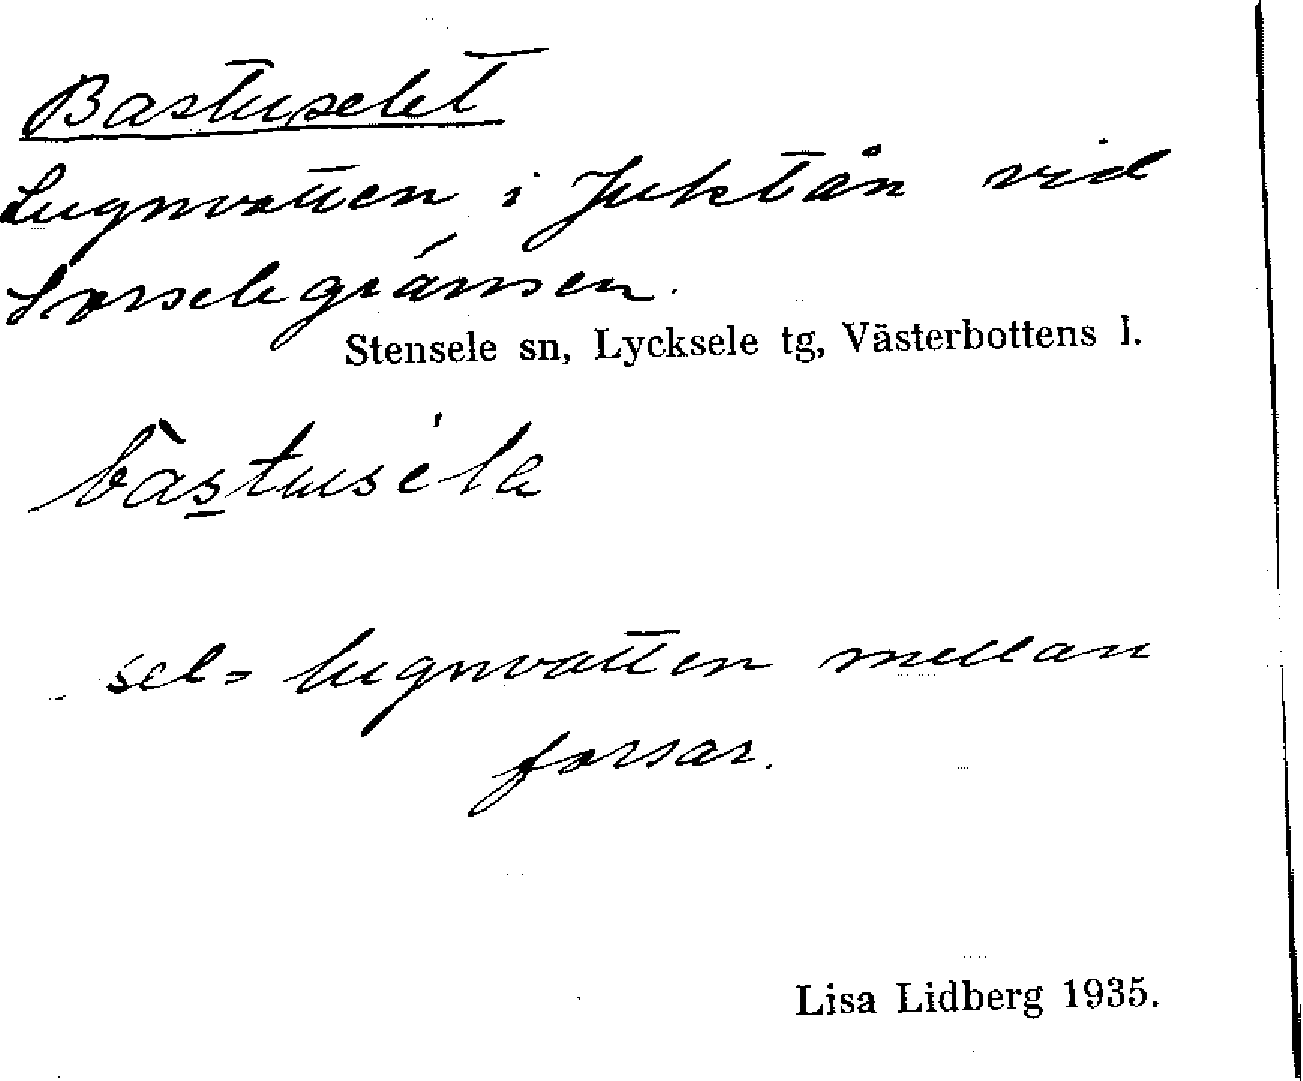 Bastuselet
Lugnvatten i Juktån vid
Sorselegränsen.
Stensele sn, Lycksele tg, Västerbottens l.
bàstuséla
sel = lugnvatten mellan
forsar.
Lisa Lidberg 1935.